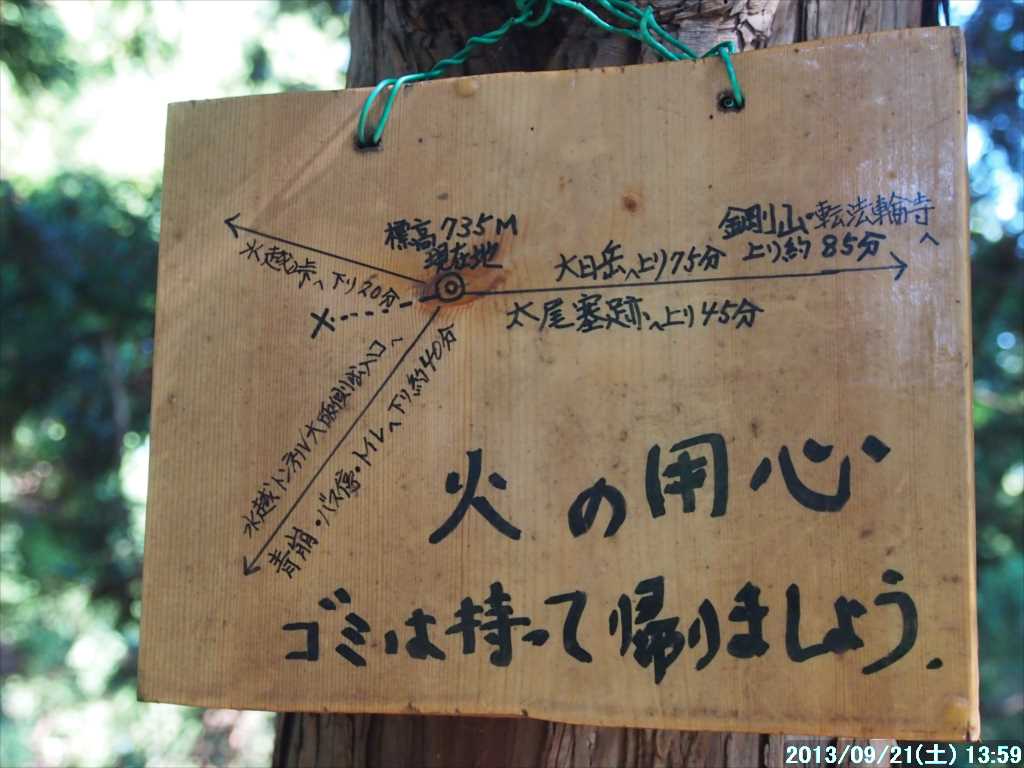 標高735M
現在地
金剛山・転法輪寺へ
上り約85分
大日岳へ上り75分
太尾塞跡へ上り45分
水越峠へ下り20分
水越トンネル大阪側出入口へ
青崩・バス停・トイレへ下り約40分
火の用心
ゴミは持って帰りましょう.
2013/09/21(土) 13:59